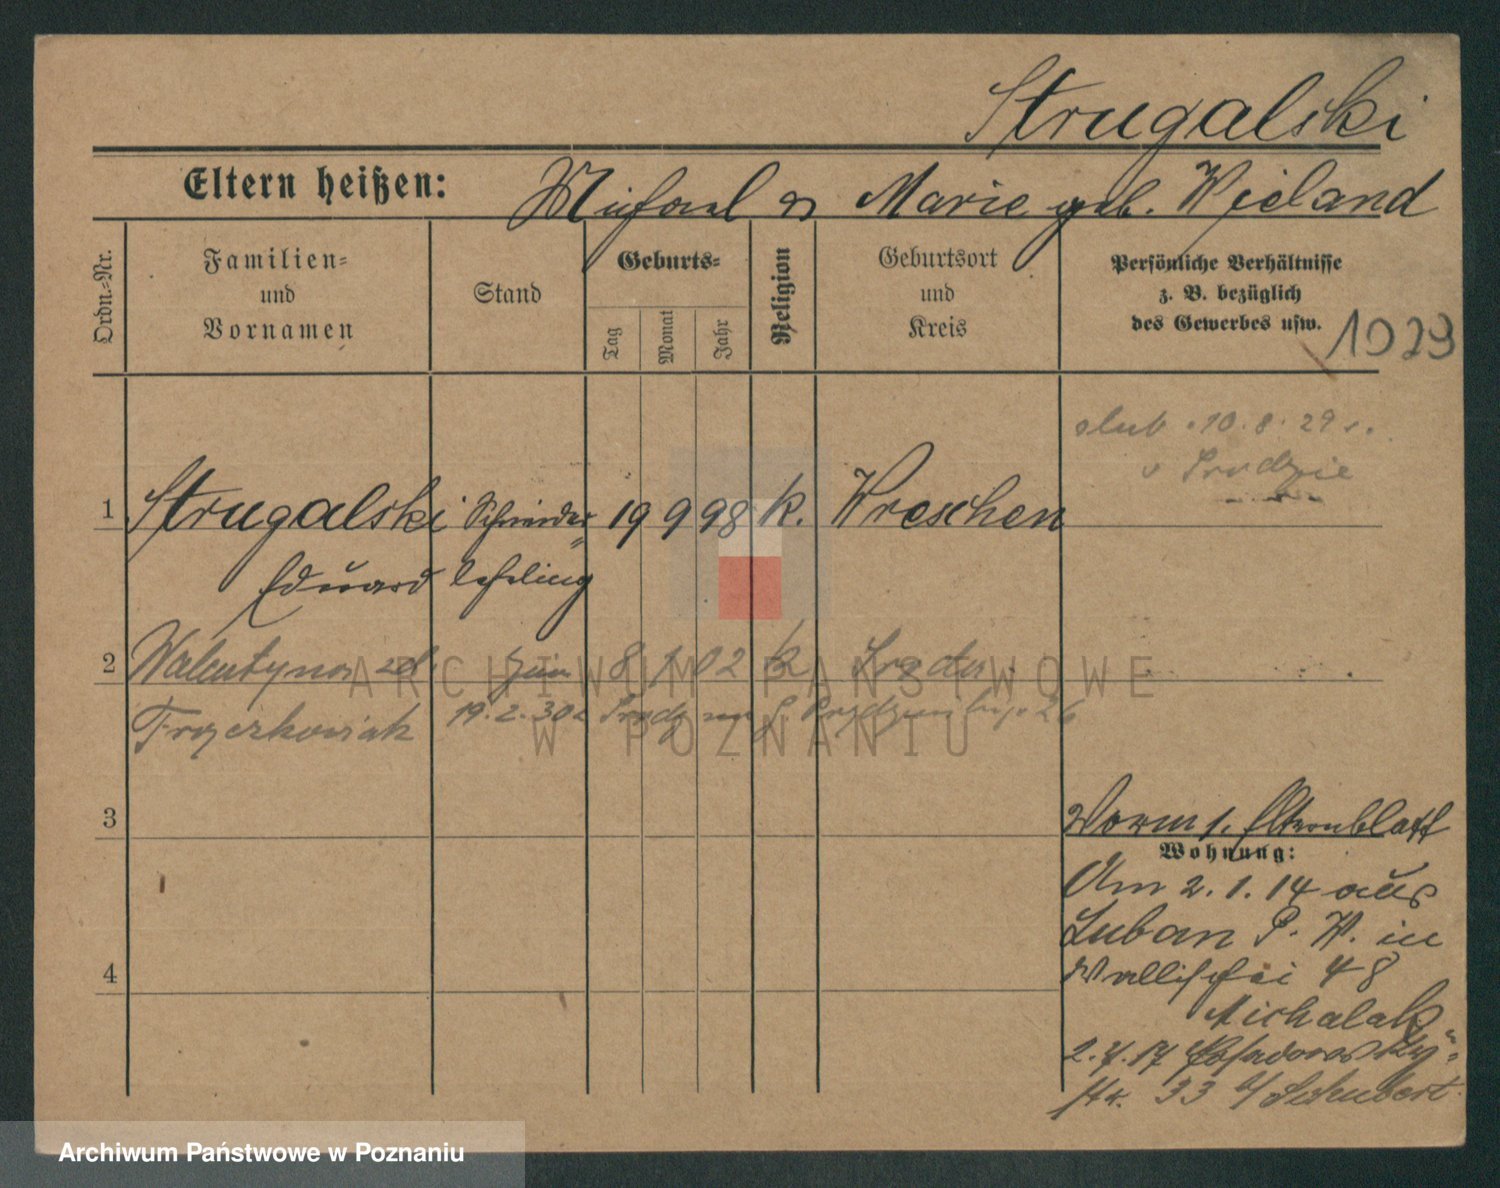 Strugalski
Eltern heißen: Michael u Marie geb. Wieland
Ordn.-Nr.
Familien-
und
Vornamen
Stand
Geburts-
Tag
Monat
Jahr
Religion
Geburtsort
und
Kreis
Persönliche Verhältnisse
z. B. bezüglich
des Gewerbes usw.
1929
ślub 10.8.29 r.
1 Strugalski Schneider= 19 9 98 k. Wreschen
Eduard lehrling
2 Walentyna 8 1 02 k
Frąckowiak 19.2.30
3
4
Worm s. Elternblatt
Wohnung:
Am 2.1.14 aus
Luban P. W. in
Wallischei 48
Michalak
2.7.17
Str. 33 b/ Schubert
ARCHIWUM PAŃSTWOWE
W POZNANIU
Archiwum Państwowe w Poznaniu